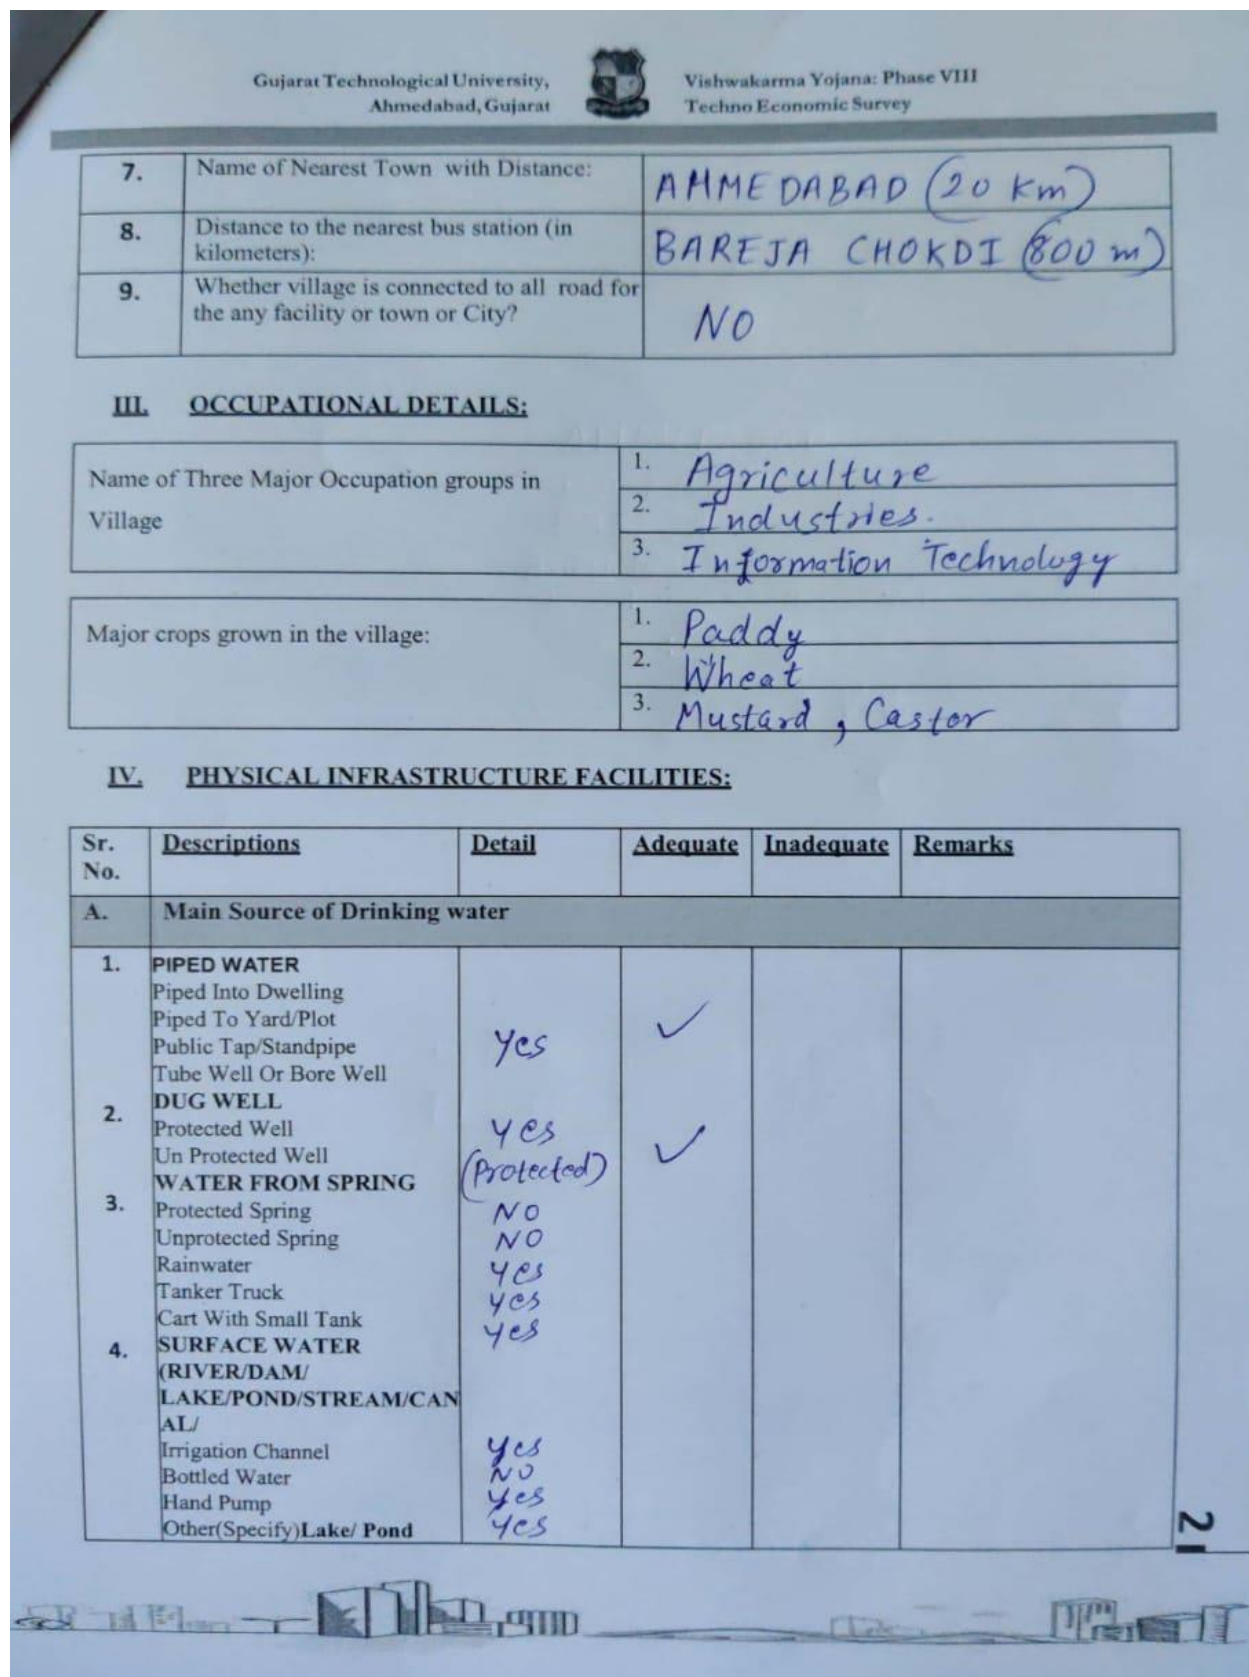 Gujarat Technological University,
Ahmedabad, Gujarat
Vishwakarma Yojana: Phase VIII
Techno Economic Survey
7. Name of Nearest Town with Distance: AHMEDABAD (20 Km)
8. Distance to the nearest bus station (in
kilometers): BAREJA CHOKDI (800 m)
9. Whether village is connected to all road for
the any facility or town or City? NO
III. OCCUPATIONAL DETAILS:
Name of Three Major Occupation groups in
Village
1. Agriculture
2. Industries.
3. Information Technology
Major crops grown in the village:
1. Paddy
2. Wheat
3. Mustard, Castor
IV. PHYSICAL INFRASTRUCTURE FACILITIES:
Sr. No. Descriptions Detail Adequate Inadequate Remarks
A. Main Source of Drinking water
1. PIPED WATER
Piped Into Dwelling
Piped To Yard/Plot ✓
Public Tap/Standpipe Yes
Tube Well Or Bore Well
2. DUG WELL
Protected Well Yes
Un Protected Well (Protected) ✓
WATER FROM SPRING
3. Protected Spring NO
Unprotected Spring NO
Rainwater Yes
Tanker Truck Yes
Cart With Small Tank Yes
4. SURFACE WATER
(RIVER/DAM/
LAKE/POND/STREAM/CAN
AL/
Irrigation Channel Yes
Bottled Water NO
Hand Pump Yes
Other(Specify)Lake/ Pond Yes
21